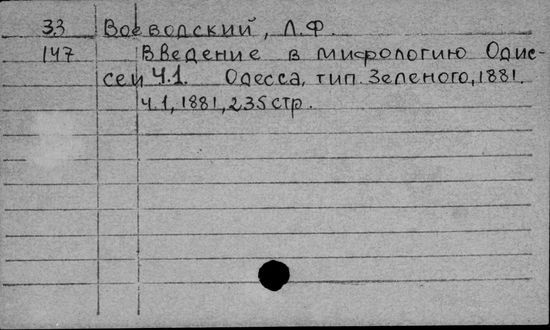 33 Воеводский, Л.Ф.
147 Введение в мифологию Одис-
сеи Ч.1. Одесса, тип. Зеленого, 1881.
Ч.1, 1881, 235 стр.